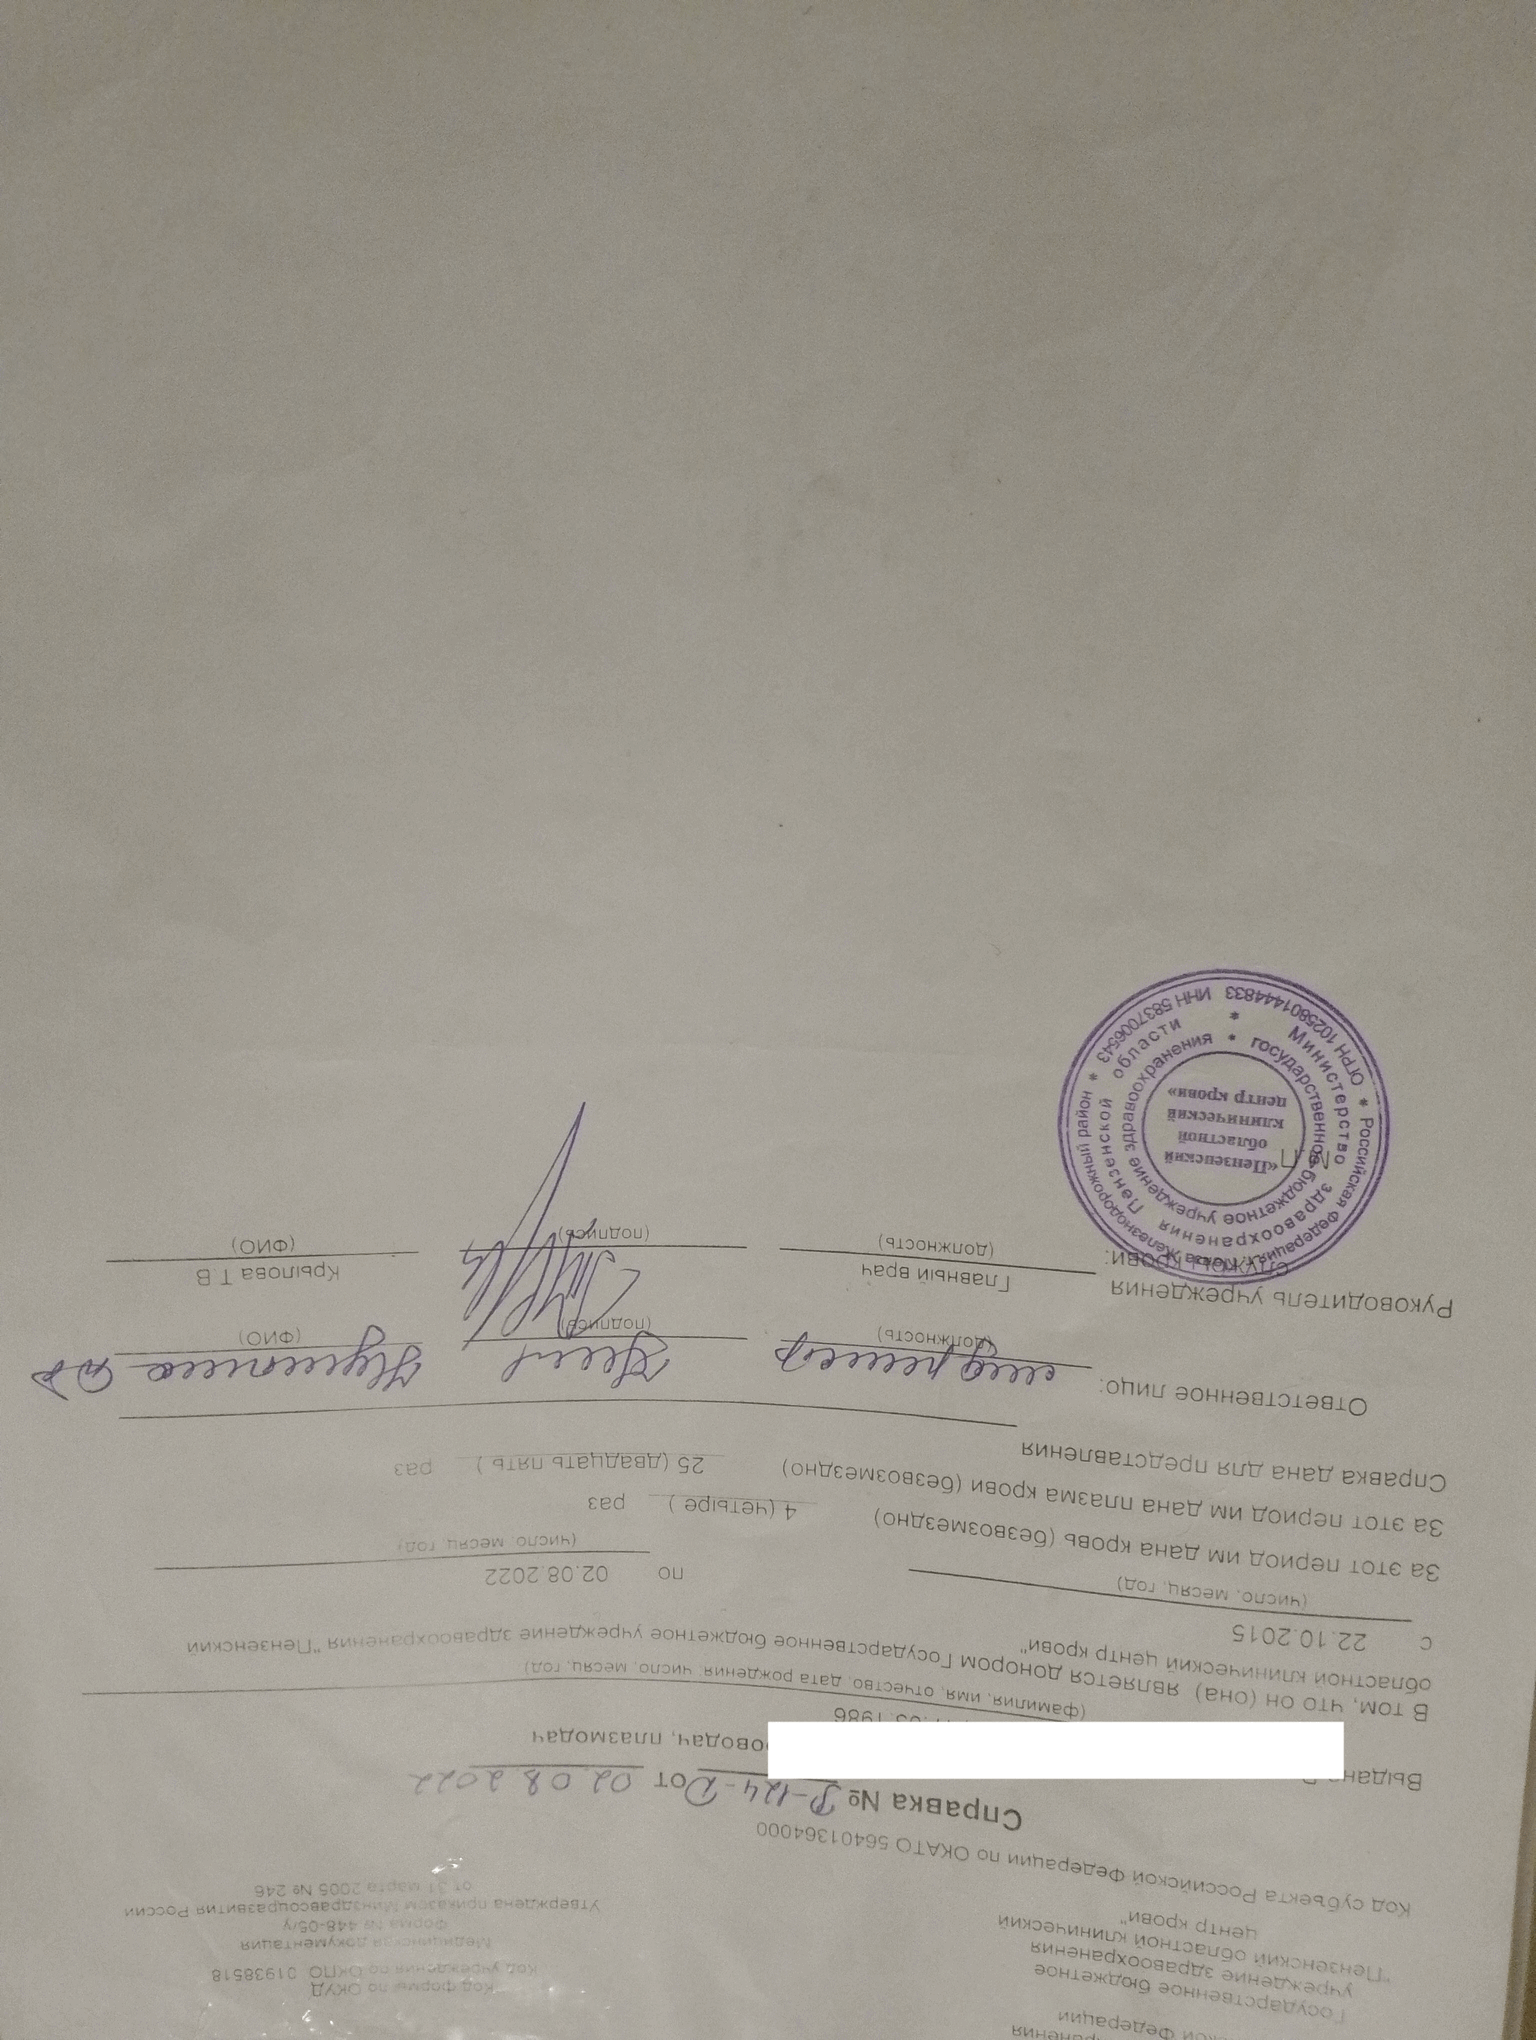 ранения
ской Федерации
Государственное бюджетное
учреждение здравоохранения
"Пензенский областной клинический
центр крови"
Код формы по ОКУД
Код учреждения по ОКПО 01938518
Медицинская документация
Форма № 448-05/у
Утверждена приказом Минздравсоцразвития России
от 31 марта 2005 № 246
Код субъекта Российской Федерации по ОКАТО 56401364000
Справка № Р-124-D от 02.08.2022
Выдана
роводач, плазмодач
.03.1986
(фамилия, имя, отчество, дата рождения: число, месяц, год)
В том, что он (она) является донором Государственное бюджетное учреждение здравоохранения "Пензенский
областной клинический центр крови"
с 22.10.2015 по 02.08.2022
(число, месяц, год) (число, месяц, год)
За этот период им дана кровь (безвозмездно) 4 (четыре ) раз
За этот период им дана плазма крови (безвозмездно) 25 (двадцать пять ) раз
Справка дана для представления
Ответственное лицо:
(должность) (подпись) (ФИО)
Руководитель учреждения
службы крови: Главный врач Крылова Т.В
(должность) (подпись) (ФИО)
М.П.
Российская Федерация г. Пенза Железнодорожный район * ИНН 5837006543 ОГРН 1025801444833 *
Министерство здравоохранения Пензенской области *
государственное бюджетное учреждение здравоохранения *
«Пензенский
областной
клинический
центр крови»